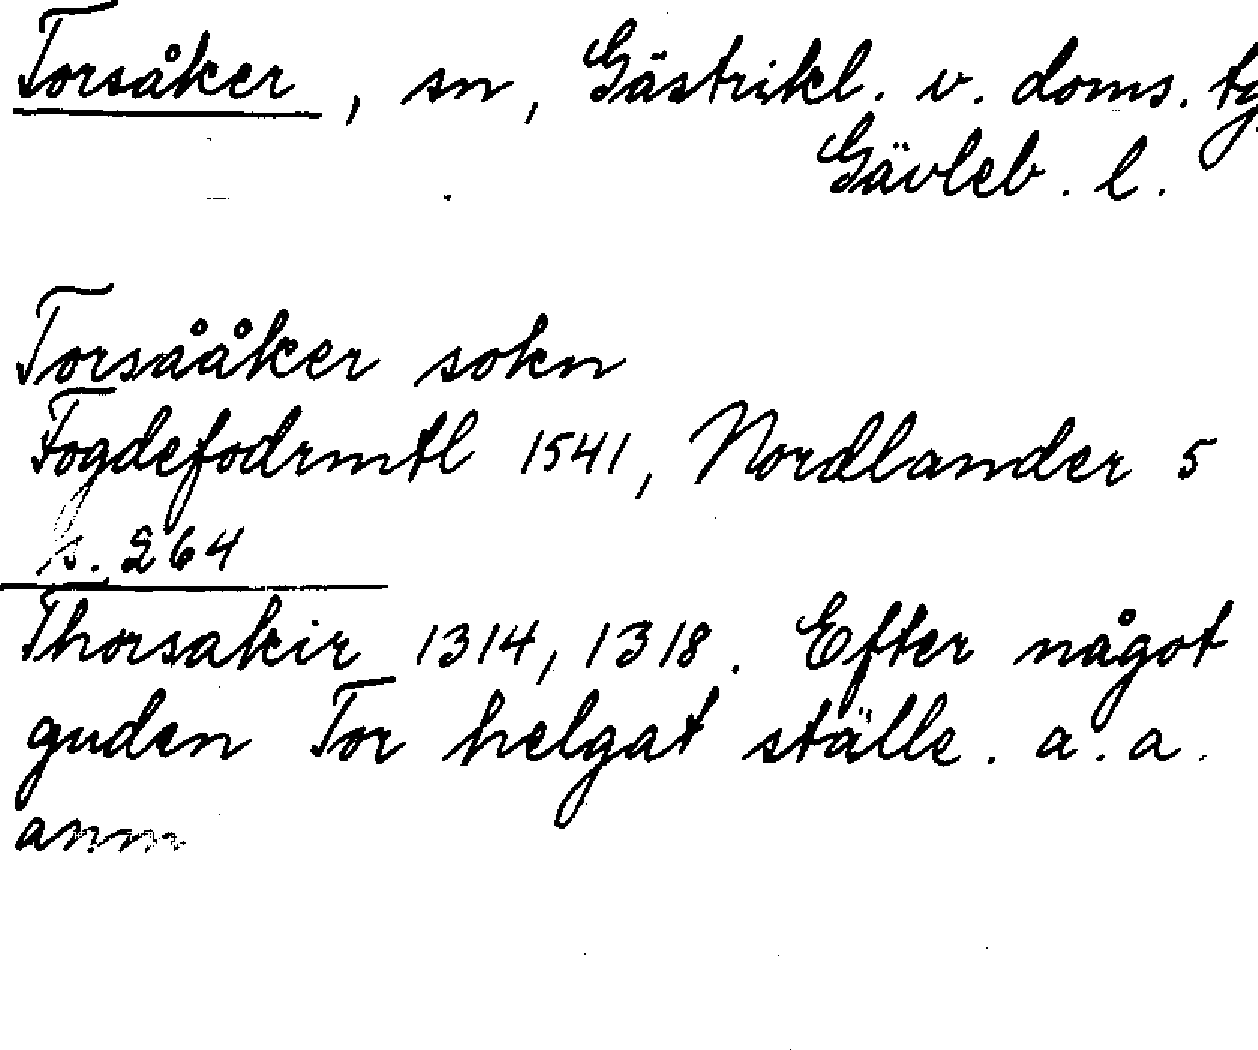 Torsåker, sn, Gästrikl. v. doms. tg
Gävleb. l.
Torsååker sokn
Fogdefodrmtl 1541, Nordlander 5
s. 264
Thorsakir 1314, 1318. Efter något
guden Tor helgat ställe. a. a.
anm